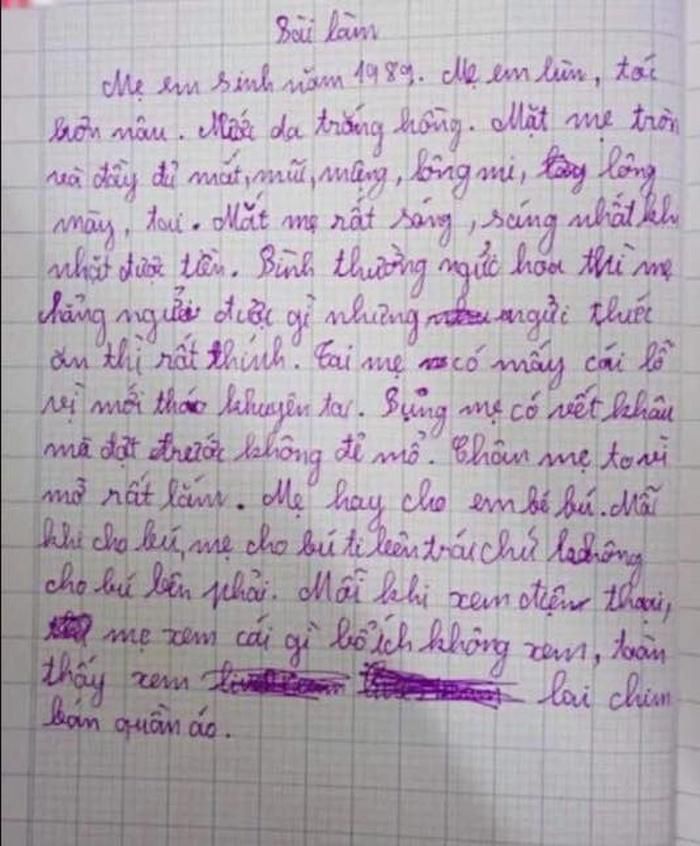 Bài làm
Mẹ em sinh năm 1989. Mẹ em lùn, tóc
hơn nâu. Màu da trắng hồng. Mặt mẹ tròn
và đầy đủ mắt, mũi, miệng, lông mi, lông
mày, tai. Mắt mẹ rất sáng, sáng nhất khi
nhặt được tiền. Bình thường ngửi hoa thì mẹ
chẳng ngửi được gì nhưng ngửi thức
ăn thì rất thính. Tai mẹ có mấy cái lỗ
vì mới tháo khuyên tai. Bụng mẹ có vết khâu
mà đợt trước không đẻ mổ. Chân mẹ to vì
mỡ rất lắm. Mẹ hay cho em bé bú. Mỗi
khi cho bú, mẹ cho bú ti bên trái chứ không
cho bú bên phải. Mỗi khi xem điện thoại,
mẹ xem cái gì bổ ích không xem, toàn
thấy xem lai chim
bán quần áo.